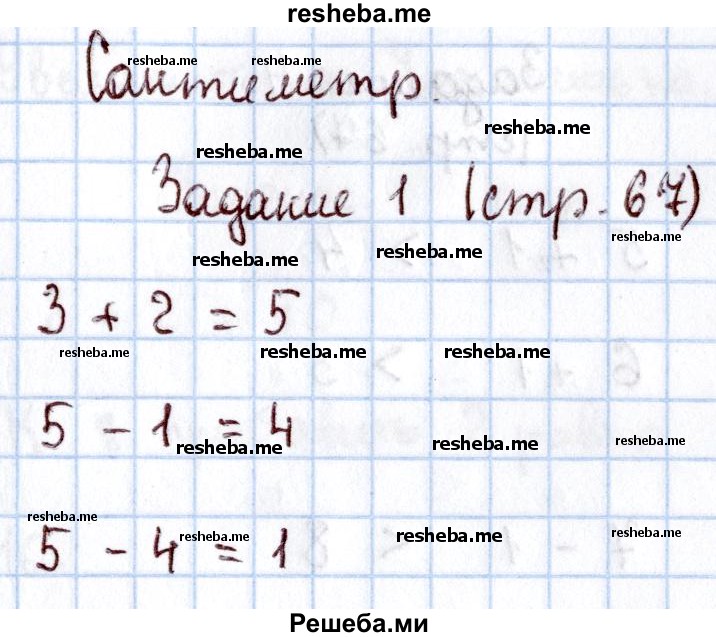 resheba.me
Сантиметр.
resheba.me resheba.me
resheba.me
resheba.me
Задание 1 (стр. 67)
resheba.me
resheba.me resheba.me
3 + 2 = 5
resheba.me resheba.me resheba.me
5 - 1 = 4
resheba.me resheba.me resheba.me
resheba.me
5 - 4 = 1
resheba.me resheba.me resheba.me
Решеба.ми